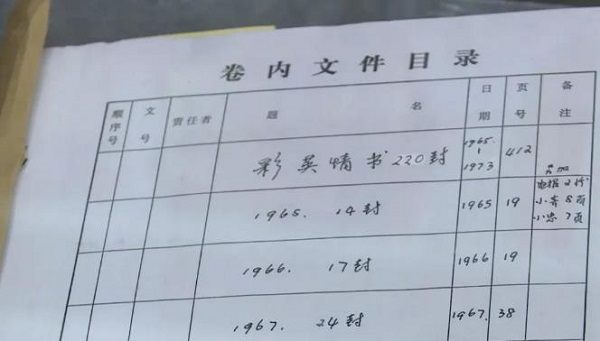 卷内文件目录
顺序号 文号 责任者 题名 日期 页号 备注
彩英情书220封 1965.-1973 412
1965. 14封 1965 19 电报2份 小奔8页 小忠7页
1966. 17封 1966 19
1967. 24封 1967. 38